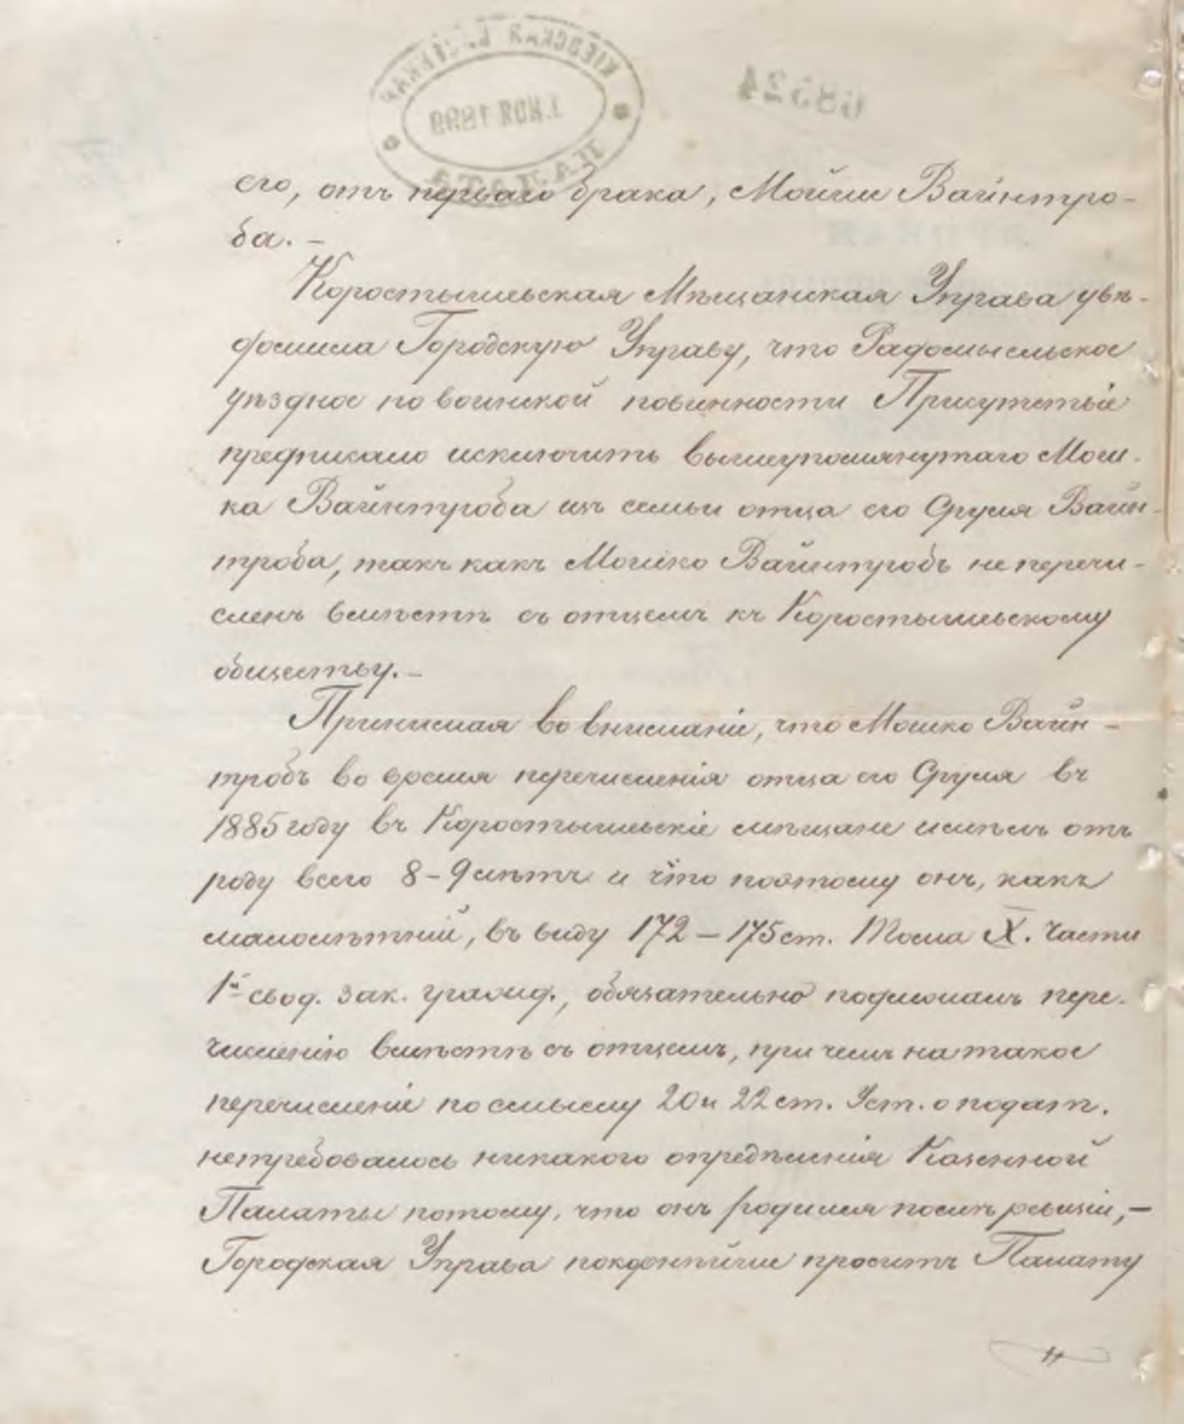 КІЕВСКАЯ КАЗЕННАЯ
1. НОЯ 1899
ПАЛАТА
68524
его, отъ перваго брака, Мойши Вайнтро-
ба. –
Коростышевская Мѣщанская Управа увѣ-
домила Городскую Управу, что Радомысльское
уѣздное по воинской повинности Присутствіе
предписало исключить вышеупомянутаго Мош-
ка Вайнтроба изъ семьи отца его Сруля Вайн-
троба, такъ какъ Мошко Вайнтробъ не перечи-
сленъ вмѣстѣ съ отцемъ къ Коростышевскому
обществу. –
Принимая во вниманіе, что Мошко Вайн-
тробъ во время перечисленія отца его Сруля въ
1885 году въ Коростышевскіе мѣщане имѣлъ отъ
роду всего 8 – 9 лѣтъ и что поэтому онъ, какъ
малолѣтній, въ виду 172 – 175 ст. Тома X. Части
1й свод. зак. гражд., обязательно подлежалъ пере-
численію вмѣстѣ съ отцемъ, при чемъ на такое
перечисленіе по смыслу 20 и 22 ст. Уст. о подат.
не требовалось никакого опредѣленія Казенной
Палаты потому, что онъ родился послѣ ревизіи, –
Городская Управа покорнѣйше проситъ Палату